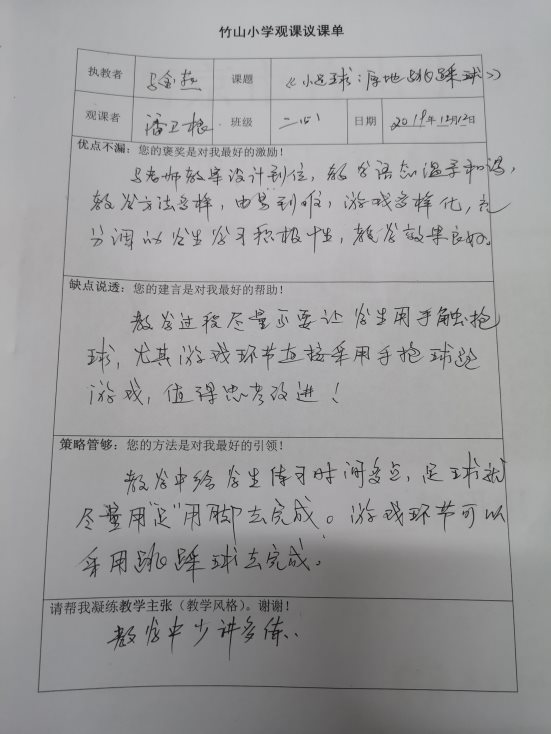 竹山小学观课议课单
执教者 马金 课题 《小足球：原地跳踩球》
观课者 潘卫根 班级 二(5) 日期 2019年12月12日
优点不漏：您的褒奖是对我最好的激励！
马老师教案设计到位，教学语态温柔和谐，
教学方法多样，由易到难，游戏多样化，充
分调动学生学习积极性，教学效果良好。
缺点说透：您的建言是对我最好的帮助！
教学过程尽量不要让学生用手触抱
球，尤其游戏环节直接采用手抱球跑
游戏，值得思考改进！
策略管够：您的方法是对我最好的引领！
教学中给学生练习时间多点，足球就
尽量用"足"用脚去完成。游戏环节可以
采用跳踩球去完成。
请帮我凝练教学主张（教学风格）。谢谢！
教学中少讲多练、